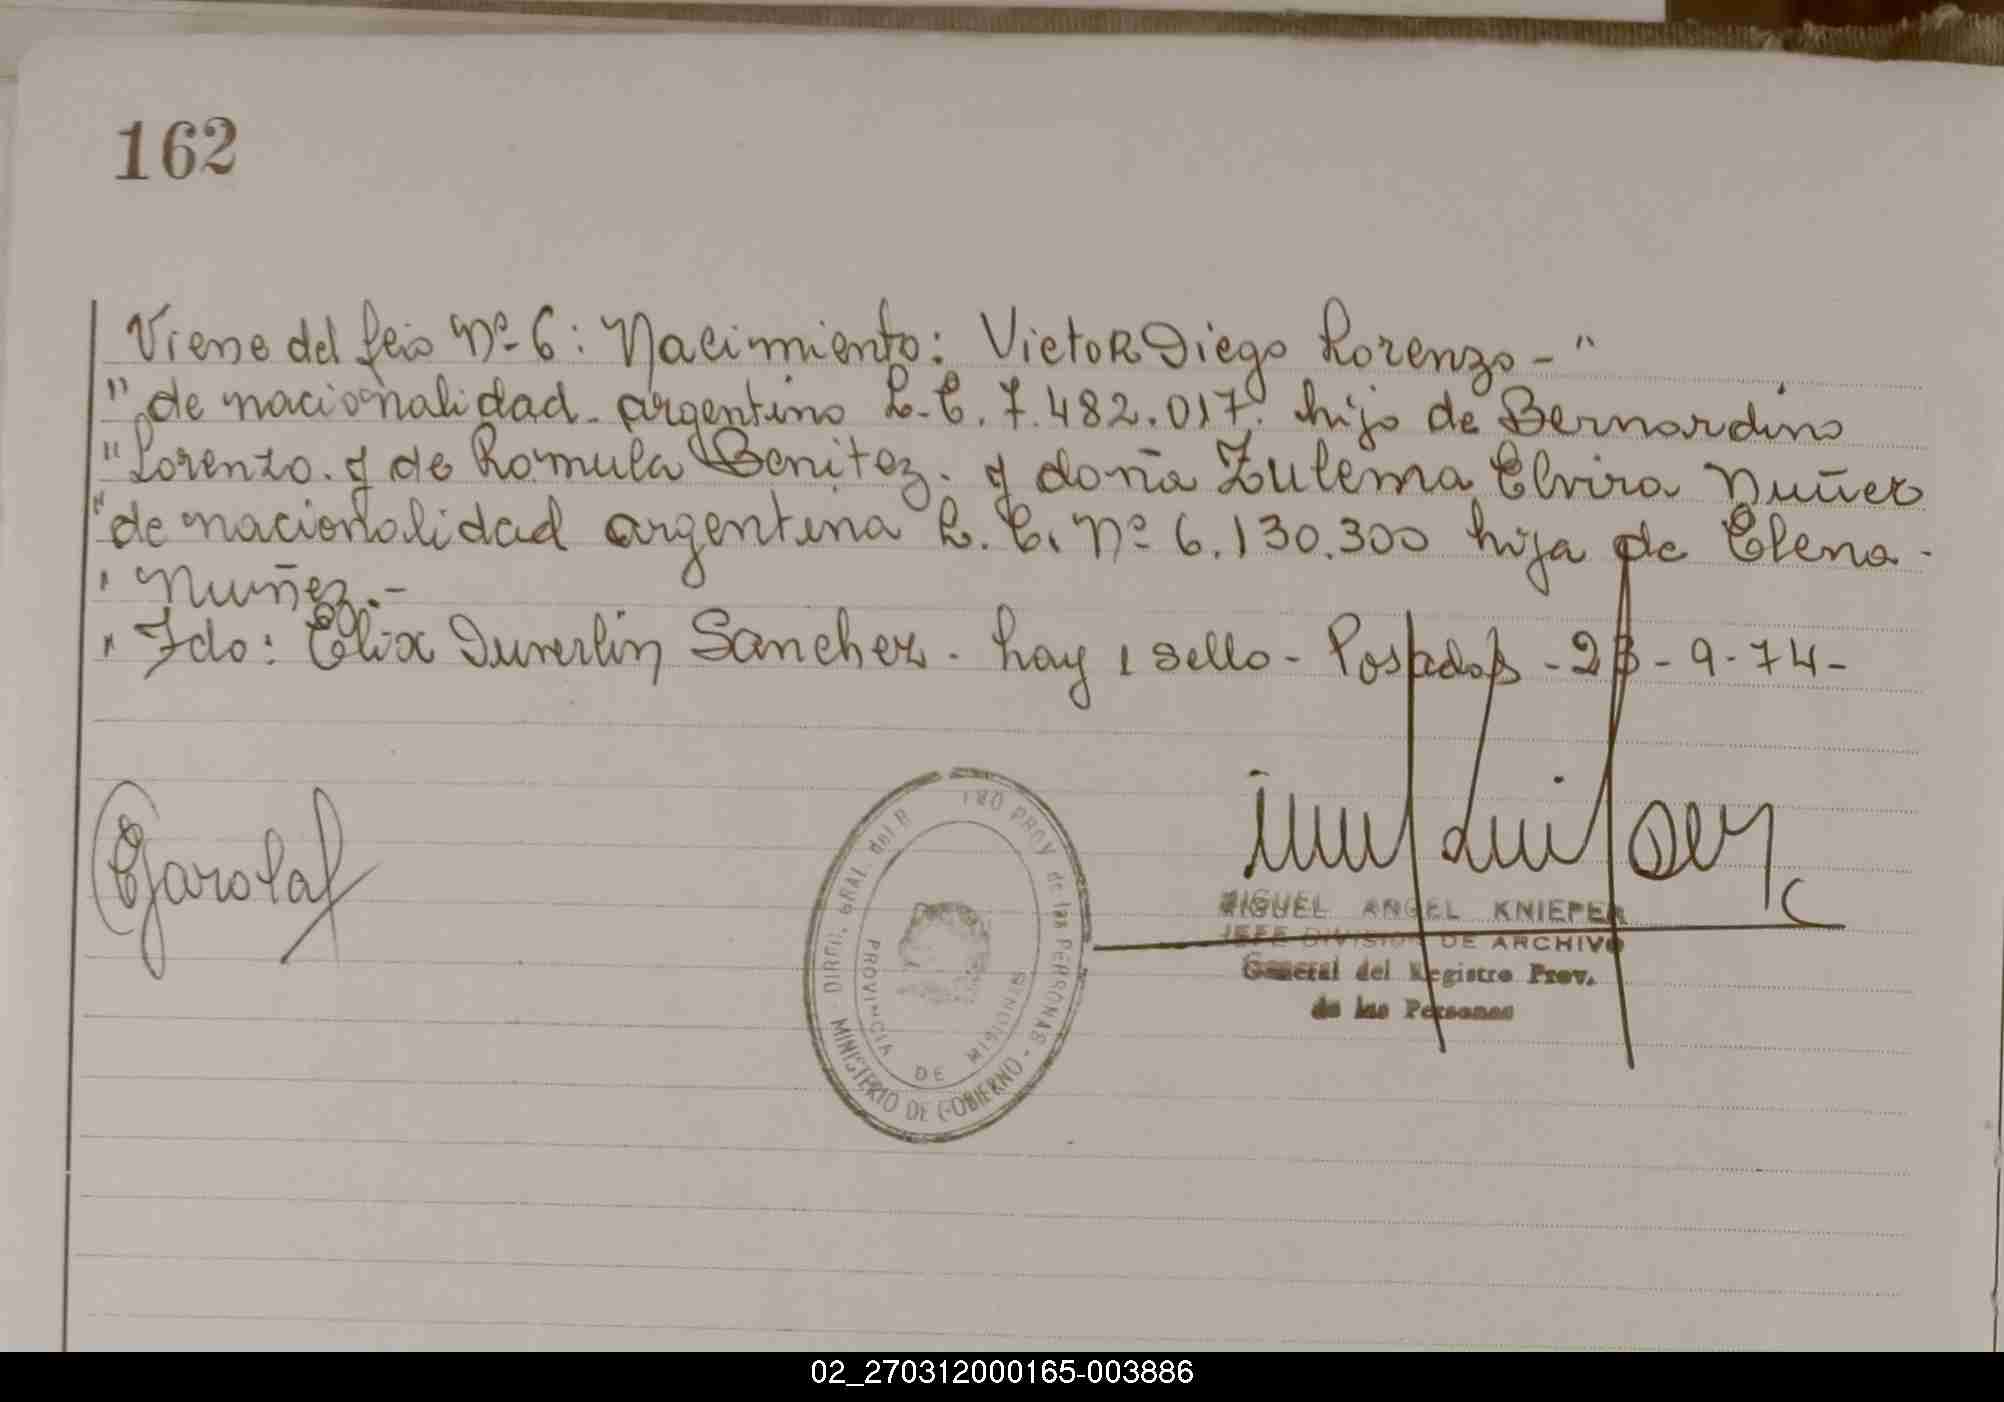 162
Viene del feio Nº 6: Nacimiento: Victor Diego Lorenzo - "
" de nacionalidad argentino L.E. 7.482.017. hijo de Bernardino
" Lorenzo. y de Romula Benitez. y doña Zulema Elvira Nuñez
" de nacionalidad argentina L.C. Nº 6.130.300 hija de Elena -
" Nuñez.-
" Fdo: Elix Sanchez - hay 1 sello - Posadas - 23 - 9 - 74 -
DIREC. GRAL del R PROV de las PERSONAS - MINISTERIO DE GOBIERNO -
PROVINCIA DE MISIONES
MIGUEL ANGEL KNIEPER
JEFE DIVISION DE ARCHIVO
General del Registro Prov.
de las Personas
02_270312000165-003886